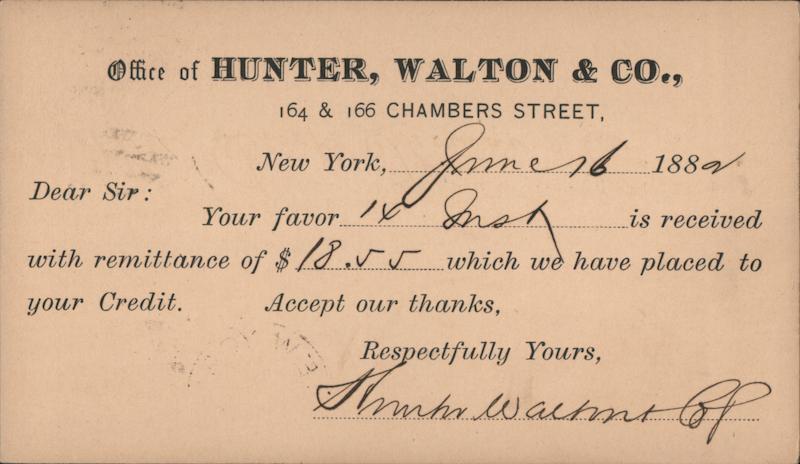 Office of HUNTER, WALTON & CO.,
164 & 166 CHAMBERS STREET,
New York, June 16 1882
Dear Sir:
Your favor 14 Inst is received
with remittance of $18.55 which we have placed to
your Credit. Accept our thanks,
Respectfully Yours,
Hunter Walton & Co